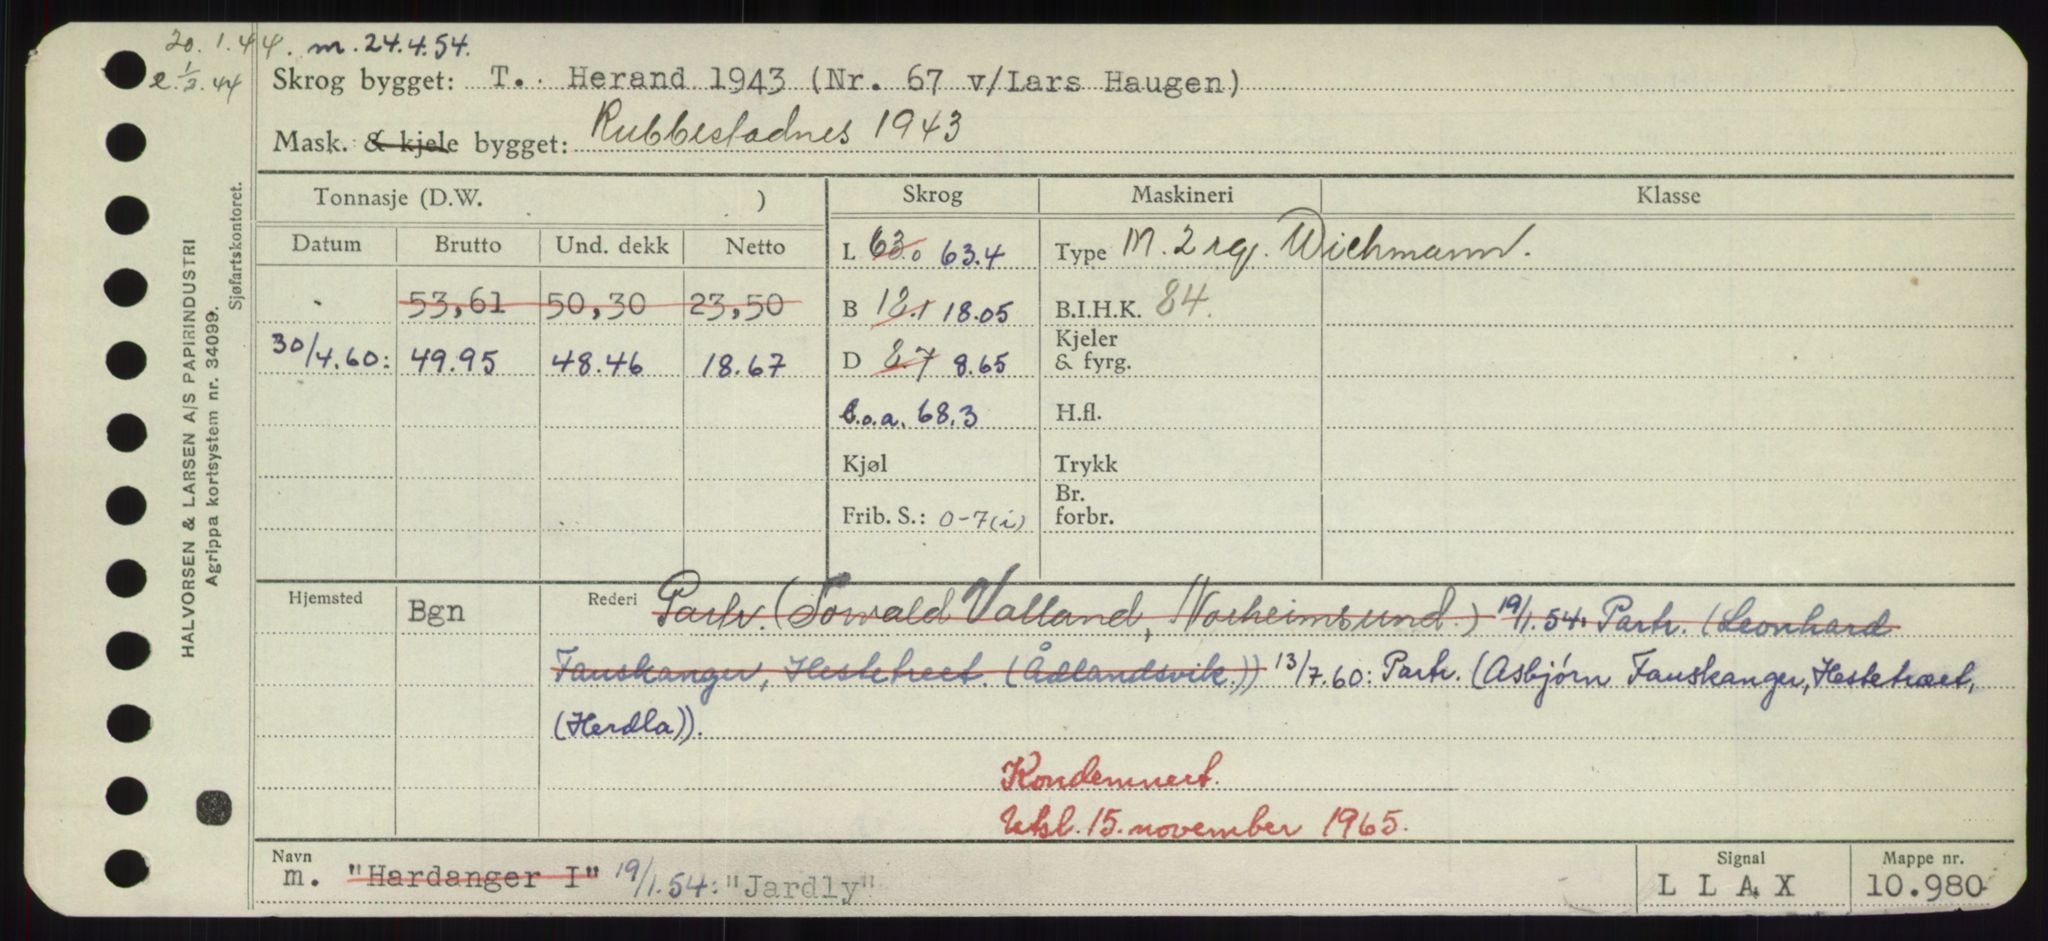 20.1.44. m. 24.4.54.
e. 1/2.44
Skrog bygget: T. Herand 1943 (Nr. 67 v/Lars Haugen)
Mask. & kjele bygget: Rubbestadnes 1943
Tonnasje (D.W. )
Skrog
Maskineri
Klasse
Datum Brutto Und. dekk Netto
L 63.0 63.4
Type M. 2 sy. Wichmann.
53,61 50,30 23,50
B 18.1 18.05
B.I.H.K. 84.
30/4.60: 49.95 48.46 18.67
D 8.7 8.65
Kjeler
& fyrg.
L.o.a. 68.3
H.fl.
Kjøl
Trykk
Frib. S.: 0-7(i)
Br.
forbr.
Hjemsted Bgn
Rederi Partr. (Torvald Valland, Norheimsund.) 19/1.54: Partr. (Leonhard
Fauskanger, Hestetreet. (Ådlandsvik.)) 13/7.60: Partr. (Asbjørn Fauskanger, Hestetræet,
(Herdla)).
Kondemnert.
Utsl. 15. november 1965.
Navn
m. "Hardanger I" 19/1.54: "Jardly"
Signal
L L A X
Mappe nr.
10.980
HALVORSEN & LARSEN A/S PAPIRINDUSTRI
Agrippa kortsystem nr. 34099.
Sjøfartskontoret.